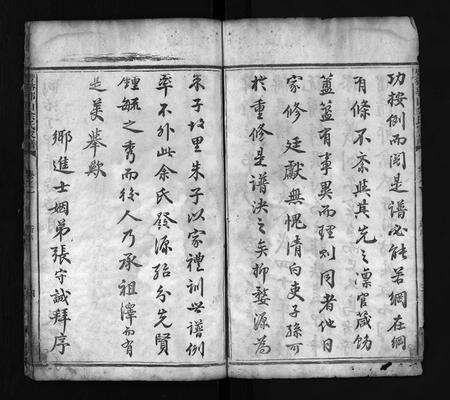 功按例而閱是譜必能若綱在綱
有條不紊與其先之凜官箴飭
簠簋有事異而理則同者他日
家修廷獻無愧清白吏子孫可
於重修是譜決之矣抑婺源為
朱子故里朱子以家禮訓世譜例
率不外此余氏發源殆分先賢
鍾毓之秀而後人乃承祖澤而有
是美舉歟
鄉進士姻弟張守誠拜序